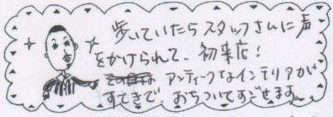 歩いていたらスタッフさんに声
をかけられて、初来店！
アンティークなインテリアが
すてきで、おちついてすごせます。